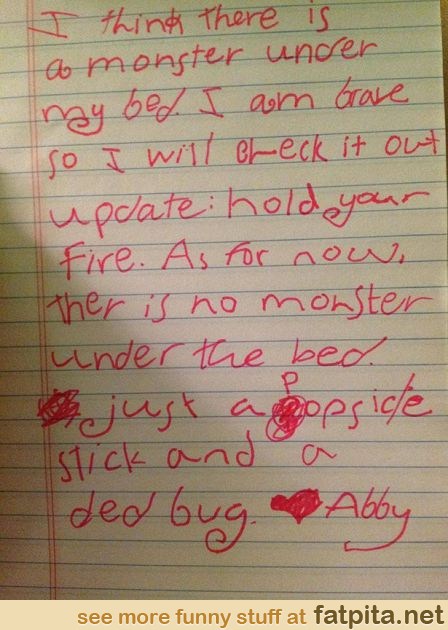 I think there is
a monster under
my bed. I am brave
so I will check it out
update: hold your
fire. As for now,
ther is no monster
under the bed.
just a popsicle
stick and a
ded bug. ♥ Abby
see more funny stuff at fatpita.net